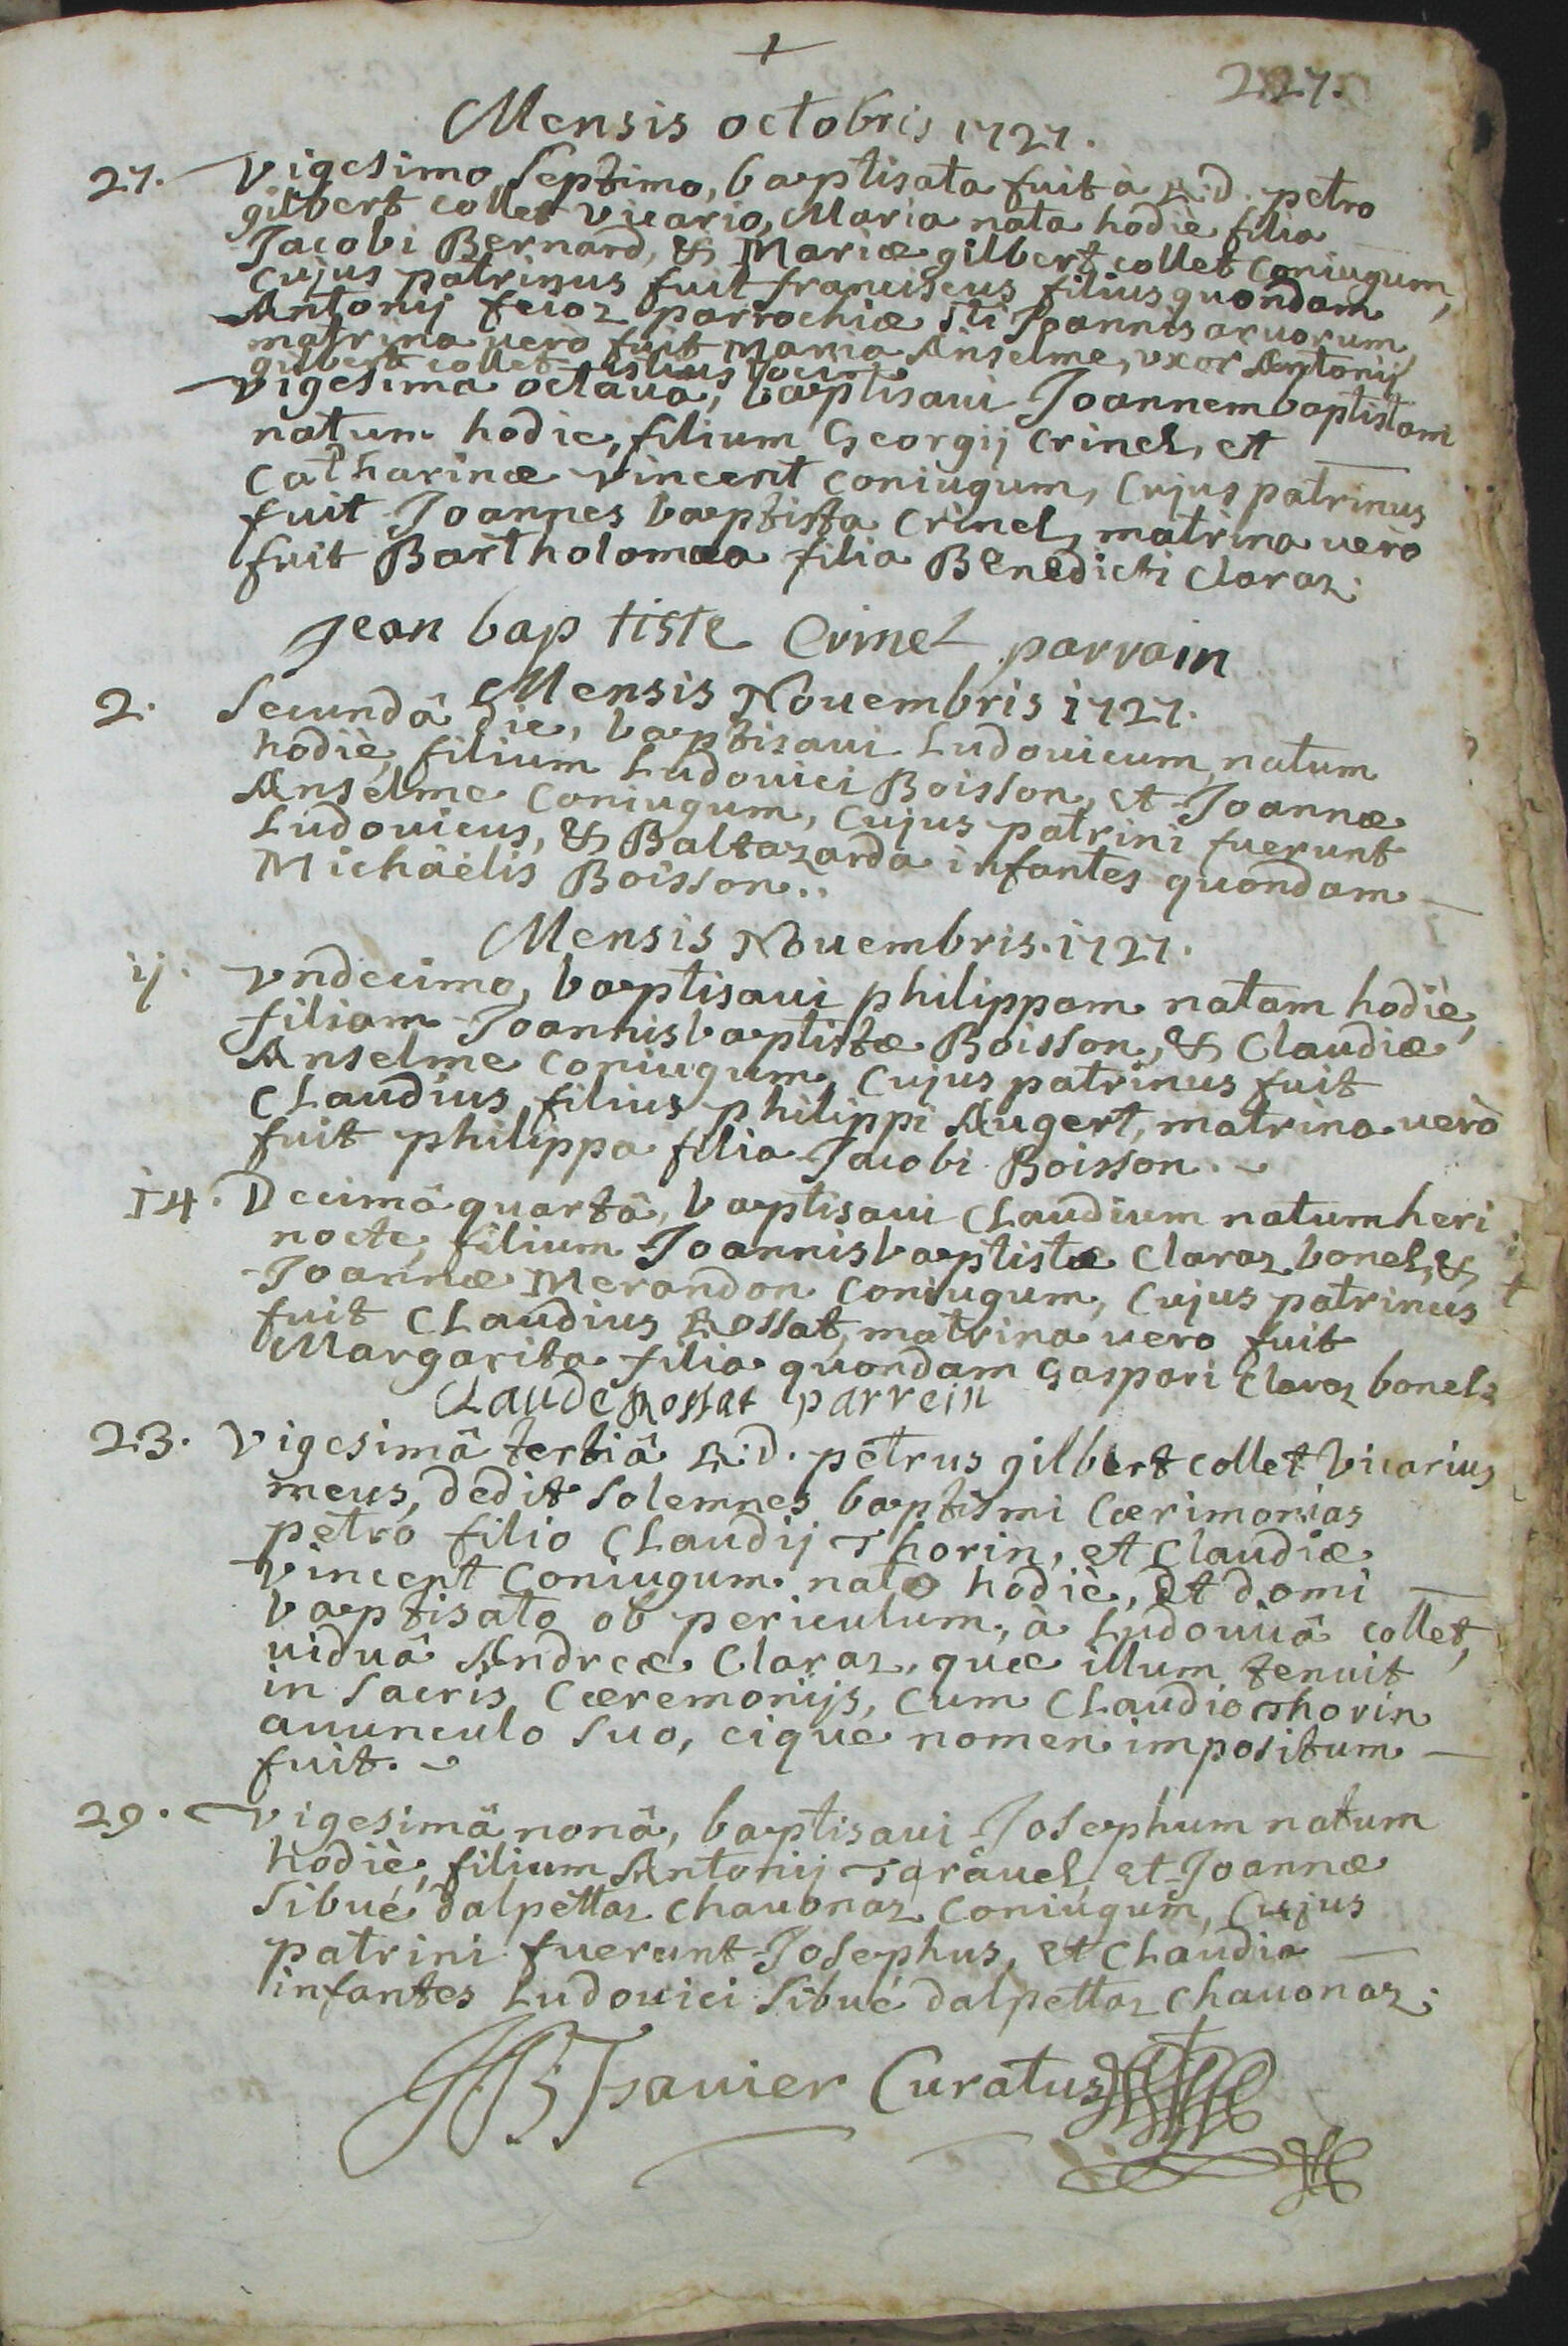 +
227.
Mensis octobris 1727.
27. Vigesimo septimo, baptisata fuit à R:d. petro
gilbert collet vicario, Maria nata hodiè filia
Jacobi Bernard, & Mariæ gilbert collet coniugum,
cujus patrinus fuit franciscus filius quondam
Antonij feioz parrochiæ sti Joannis aruorum,
matrina uerò fuit Maria Anselme, uxor Antonij
gilbert collet istius loci
Vigesima octaua, baptisaui Joannembaptistam
natum hodie, filium Georgij Crinel, et
Catharinæ vincent coniugum, cujus patrinus
fuit Joannes baptista Crinel, matrina uerò
fuit Bartholomæa filia Benedicti Claraz.
Jean bap tiste Crinel parrain
Mensis Nouembris 1727.
2. Secundâ die, baptisaui Ludouicum, natum
hodiè, filium Ludouici Boisson, et Joannæ
Anselme coniugum, cujus patrini fuerunt
Ludouicus, & Baltazarda infantes quondam
Michäelis Boisson..
Mensis Nouembris. 1727.
ij. Vndecimo, baptisaui philippam natam hodiè,
filiam Joannisbaptistæ Boisson, & Claudiæ
Anselme coniugum, cujus patrinus fuit
Claudius filius philippi Augert, matrina uerò
fuit philippa filia Jacobi Boisson.
14. Decimâ quartâ, baptisaui Claudium natum heri
nocte, filium Joannisbaptistæ Claraz bonel, &
Joannæ Merandon coniugum, cujus patrinus
fuit Claudius Rossat, matrina uero fuit
Margarita filia quondam Gaspari Claraz bonel
Claude Rossat parrein
23. Vigesimâ tertiâ R:d. petrus gilbert collet Vicarius
meus, dedit solemnes baptismi Cærimonias
petro filio Claudij Thorin, et Claudiæ
Vincent Coniugum nato hodiè, et domi
baptisato ob periculum, à Ludouicâ collet,
uiduâ Andreæ Claraz, quæ illum tenuit
in sacris Cæremonijs, cum Claudio Thorin
auunculo suo, eique nomen impositum
fuit.
29. Vigesimâ nonâ, baptisaui Josephum natum
hodiè, filium Antonij Tarauel, et Joannæ
Sibué dalpettaz chauonaz coniugum, cujus
patrini fuerunt Josephus, et Claudia
infantes Ludouici Sibué dalpettaz chauonaz.
Curatus